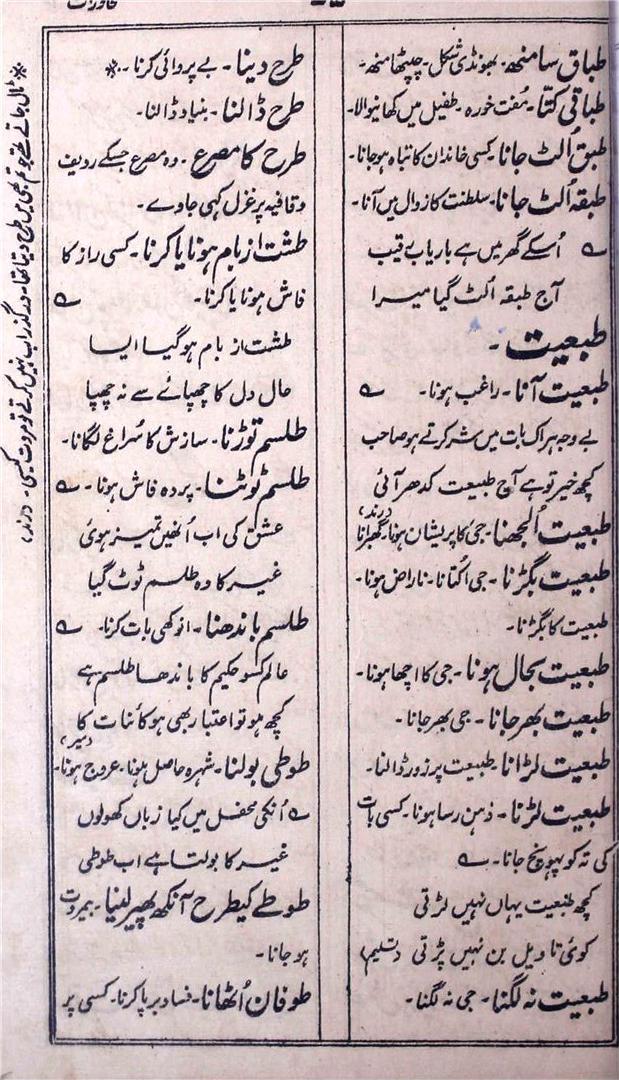 محاورات
طباق سا منھ۔ بھونڈی شکل۔ چپٹا منھ۔
طباقی کتّا۔ مُفت خورہ۔ طفیل میں کھانیوالا۔
طبق اُلٹ جانا۔ کسی خاندان کا تباہ ہوجانا۔
طبقہ اُلٹ جانا۔ سلطنت کا زوال میں آنا۔
ے اُسکے گھر میں ہے باریاب رقیب
آج طبقہ اُلٹ گیا میرا
طبعیت۔
طبعیت آنا۔ راغب ہونا۔ ے
بے وجہ ہراک بات میں شر کرتے ہو صاحب
کچھ خیر تو ہے آج طبیعت کدھر آئی
(رند)
طبعیت اُلجھنا۔ جی کا پریشان ہونا۔ گھبرانا
طبعیت بگڑنا۔ جی اُکتانا۔ ناراض ہونا۔
طبیعت کا بگڑنا۔
طبعیت بحال ہونا۔ جی کا اچھا ہونا۔
طبعیت بھر جانا۔ جی بھر جانا۔
طبعیت لڑانا۔ طبیعت پر زور ڈالنا۔
طبعیت لڑنا۔ ذہن رسا ہونا۔ کسی بات
کی تہ کو پہونچ جانا۔ ے
کچھ طبیعت یہاں نہیں لڑتی
کوئی تاویل بن نہیں پڑتی (تسلیم)
طبعیت نہ لگنا۔ جی نہ لگنا۔
طرح دینا۔ بے پروائی کرنا۔ *
طرح ڈالنا۔ بنیاد ڈالنا۔
طرح کا مصرع۔ وہ مصرع جسکے ردیف
وقافیہ پر غزل کہی جاوے۔
طشت از بام ہونا یا کرنا۔ کسی راز کا
فاش ہونا یا کرنا۔ ے
طشت از بام ہوگیا ایسا
حال دل کا چھپائے سے نہ چھپا
طلسم توڑنا۔ سازش کا سُراغ لگانا۔
طلسم ٹوٹنا۔ پردہ فاش ہونا۔ ے
عشق کی اب اُنھیں تمیز ہوئی
غیر کا وہ طلسم ٹوٹ گیا
طلسم باندھنا۔ انوکھی بات کرنا۔ ے
عالم کسو حکیم کا باندھا طلسم ہے
کچھ ہو تو اعتبار بھی ہو کائنات کا
(میر)
طوطی بولنا۔ شہرہ حاصل ہونا۔ عروج ہونا۔
ے اُنکی محفل میں کیا زباں کھولوں
غیر کا بولتا ہے اب طوطی
طوطے کیطرح آنکھ پھیر لینا۔ بیمروت
ہو جانا۔
طوفان اُٹھانا۔ فساد برپا کرنا۔ کسی پر
* ٹال جاتے تھے جو تم بھی میں طرح دیتا تھا۔ درگذر اب نہیں کرتے تو مروت کیسی۔ (رند)